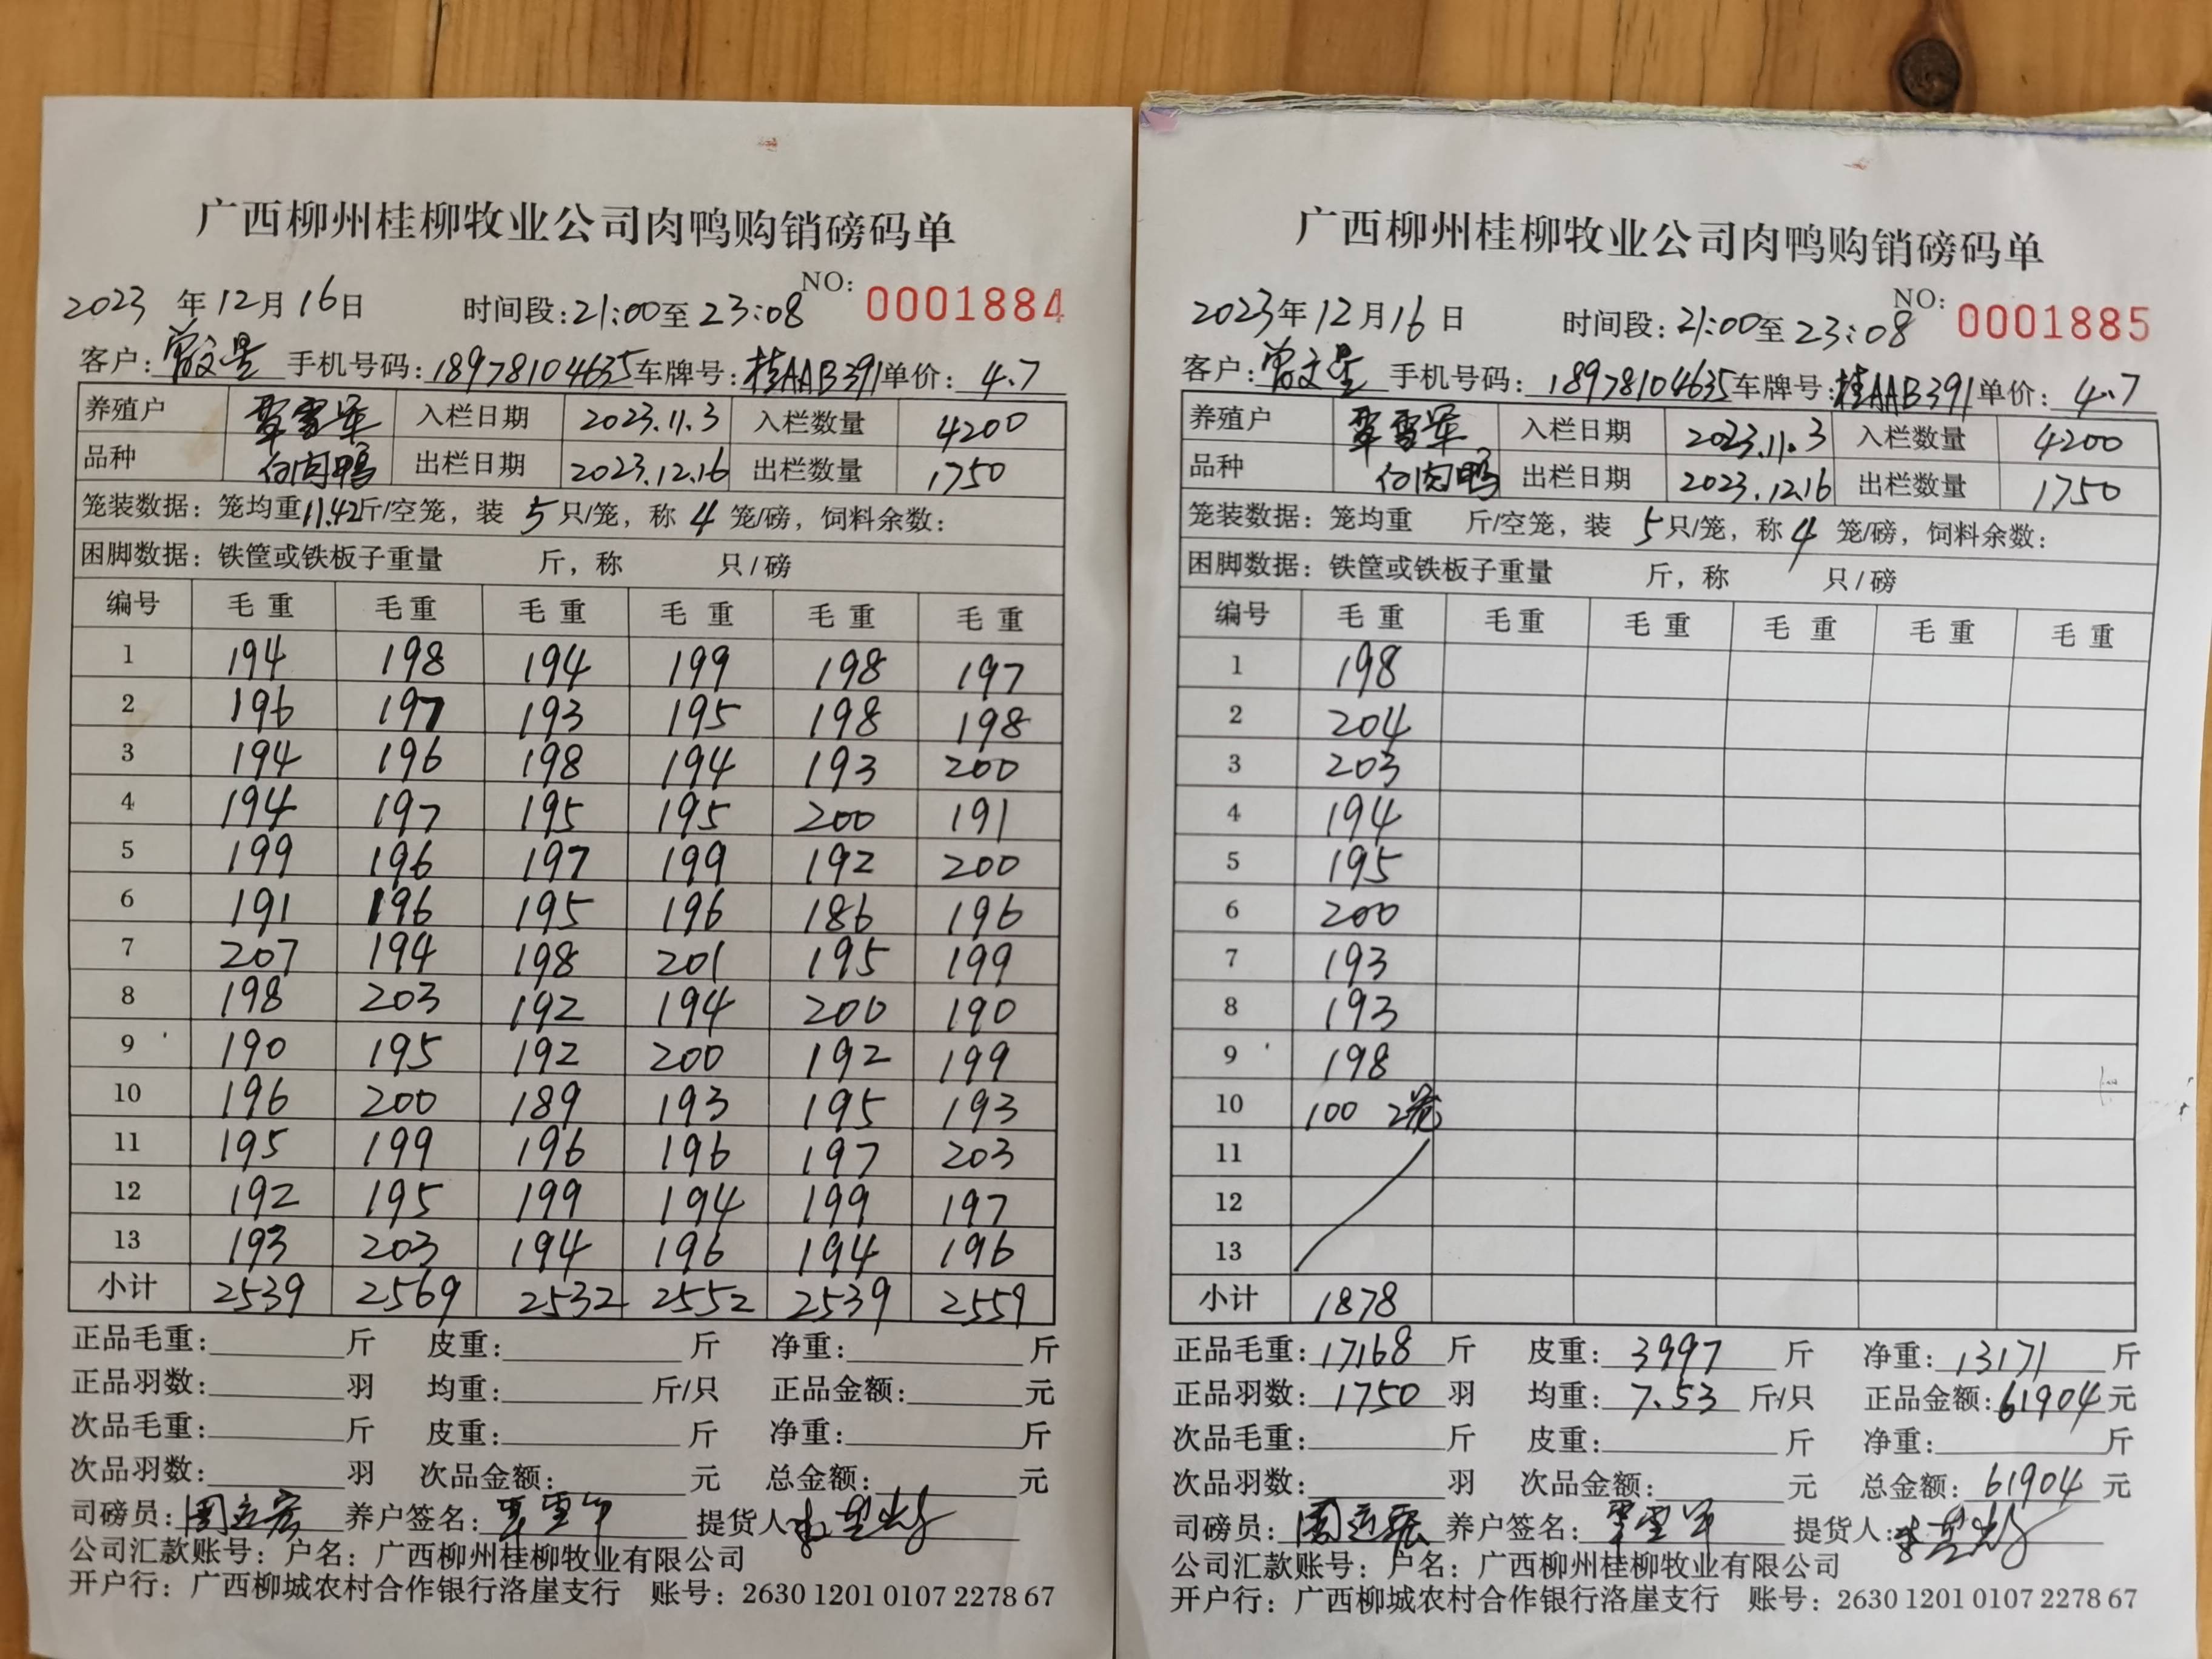 广西柳州桂柳牧业公司肉鸭购销磅码单
NO: 0001884
2023 年 12 月 16 日 时间段: 21:00 至 23:08
客户: 曾文星 手机号码: 18978104635 车牌号: 桂AAB391 单价: 4.7
养殖户 覃雪军 入栏日期 2023.11.3 入栏数量 4200
品种 白肉鸭 出栏日期 2023.12.16 出栏数量 1750
笼装数据: 笼均重 11.42 斤/空笼, 装 5 只/笼, 称 4 笼/磅, 饲料余数:
困脚数据: 铁筐或铁板子重量 斤, 称 只/磅
编号 毛重 毛重 毛重 毛重 毛重 毛重
1 194 198 194 199 198 197
2 196 197 193 195 198 198
3 194 196 198 194 193 200
4 194 197 195 195 200 191
5 199 196 197 199 192 200
6 191 196 195 196 186 196
7 207 194 198 201 195 199
8 198 203 192 194 200 190
9 190 195 192 200 192 199
10 196 200 189 193 195 193
11 195 199 196 196 197 203
12 192 195 199 194 199 197
13 193 203 194 196 194 196
小计 2539 2569 2532 2552 2539 2559
正品毛重: 斤 皮重: 斤 净重: 斤
正品羽数: 羽 均重: 斤/只 正品金额: 元
次品毛重: 斤 皮重: 斤 净重: 斤
次品羽数: 羽 次品金额: 元 总金额: 元
司磅员: 养户签名: 覃雪军 提货人:
公司汇款账号: 户名: 广西柳州桂柳牧业有限公司
开户行: 广西柳城农村合作银行洛崖支行 账号: 2630 1201 0107 2278 67
广西柳州桂柳牧业公司肉鸭购销磅码单
NO: 0001885
2023 年 12 月 16 日 时间段: 21:00 至 23:08
客户: 曾文星 手机号码: 18978104635 车牌号: 桂AAB391 单价: 4.7
养殖户 覃雪军 入栏日期 2023.11.3 入栏数量 4200
品种 白肉鸭 出栏日期 2023.12.16 出栏数量 1750
笼装数据: 笼均重 斤/空笼, 装 5 只/笼, 称 4 笼/磅, 饲料余数:
困脚数据: 铁筐或铁板子重量 斤, 称 只/磅
编号 毛重 毛重 毛重 毛重 毛重 毛重
1 198
2 204
3 203
4 194
5 195
6 200
7 193
8 193
9 198
10 100 2笼
11
12
13
小计 1878
正品毛重: 17168 斤 皮重: 3997 斤 净重: 13171 斤
正品羽数: 1750 羽 均重: 7.53 斤/只 正品金额: 61904 元
次品毛重: 斤 皮重: 斤 净重: 斤
次品羽数: 羽 次品金额: 元 总金额: 61904 元
司磅员: 养户签名: 覃雪军 提货人:
公司汇款账号: 户名: 广西柳州桂柳牧业有限公司
开户行: 广西柳城农村合作银行洛崖支行 账号: 2630 1201 0107 2278 67